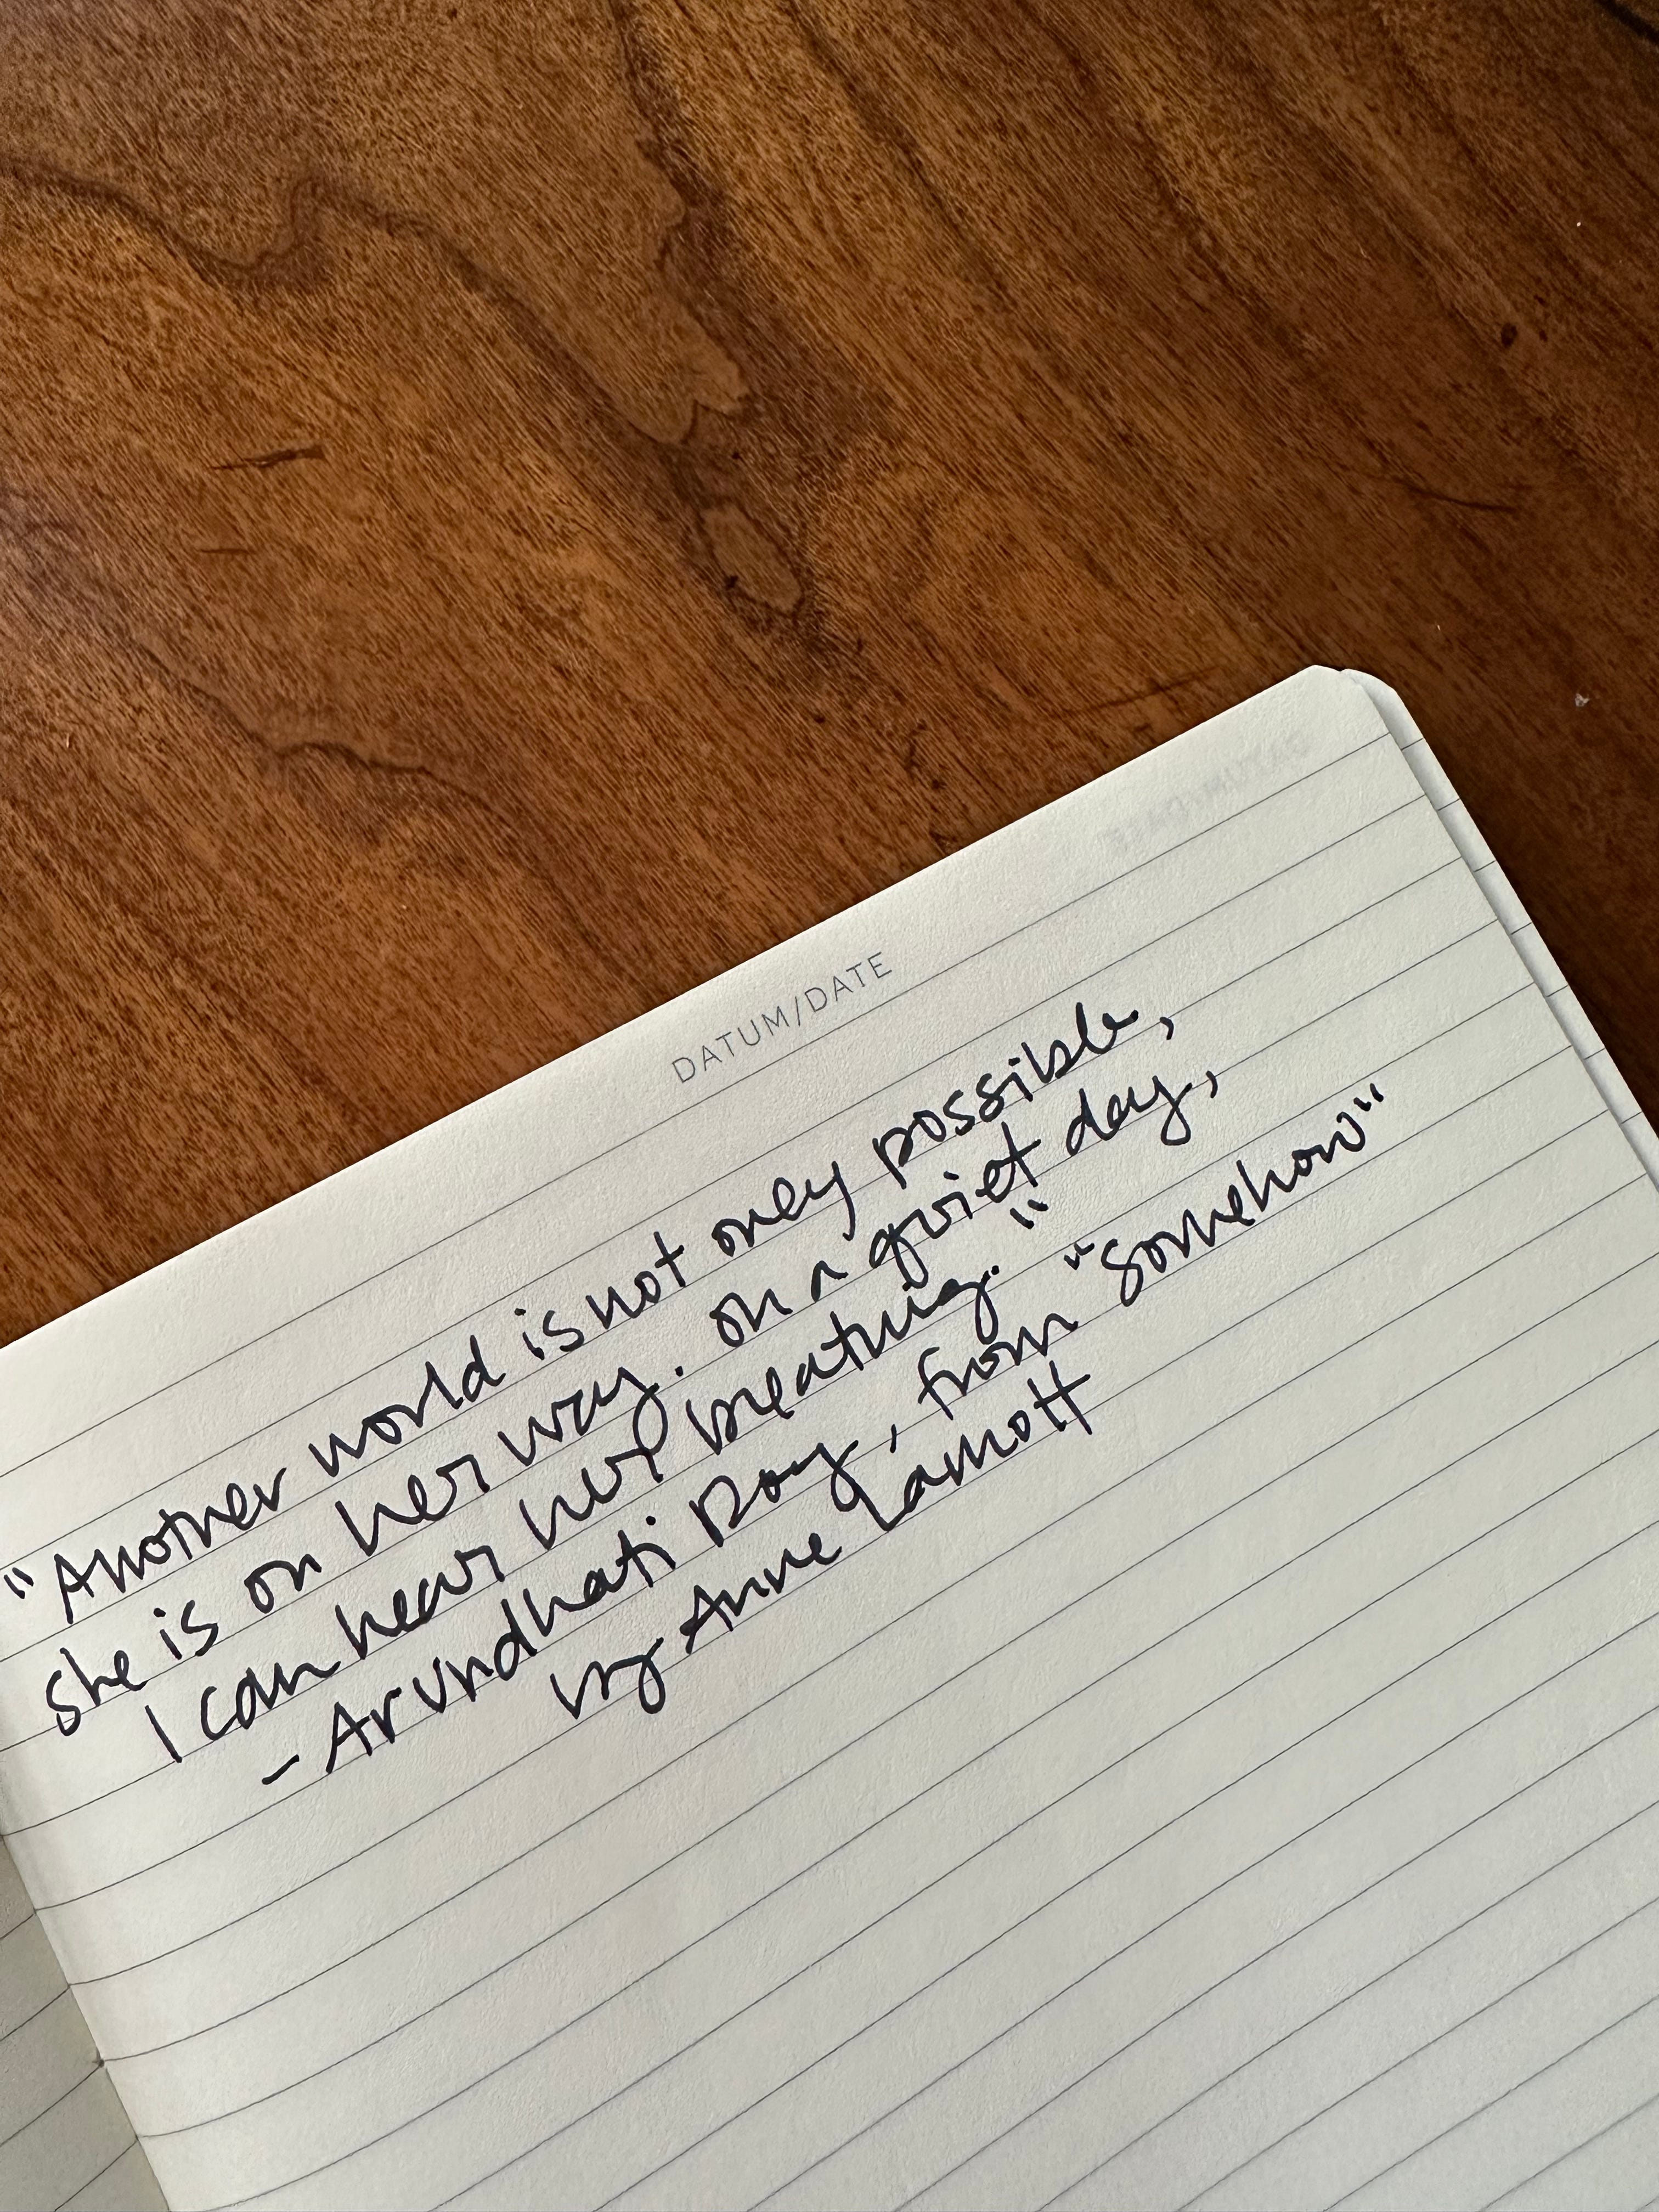 DATUM/DATE
"Another world is not only possible,
she is on her way. on a quiet day,
I can hear her breathing."
- Arundhati Roy, from "Somehow"
by Anne Lamott